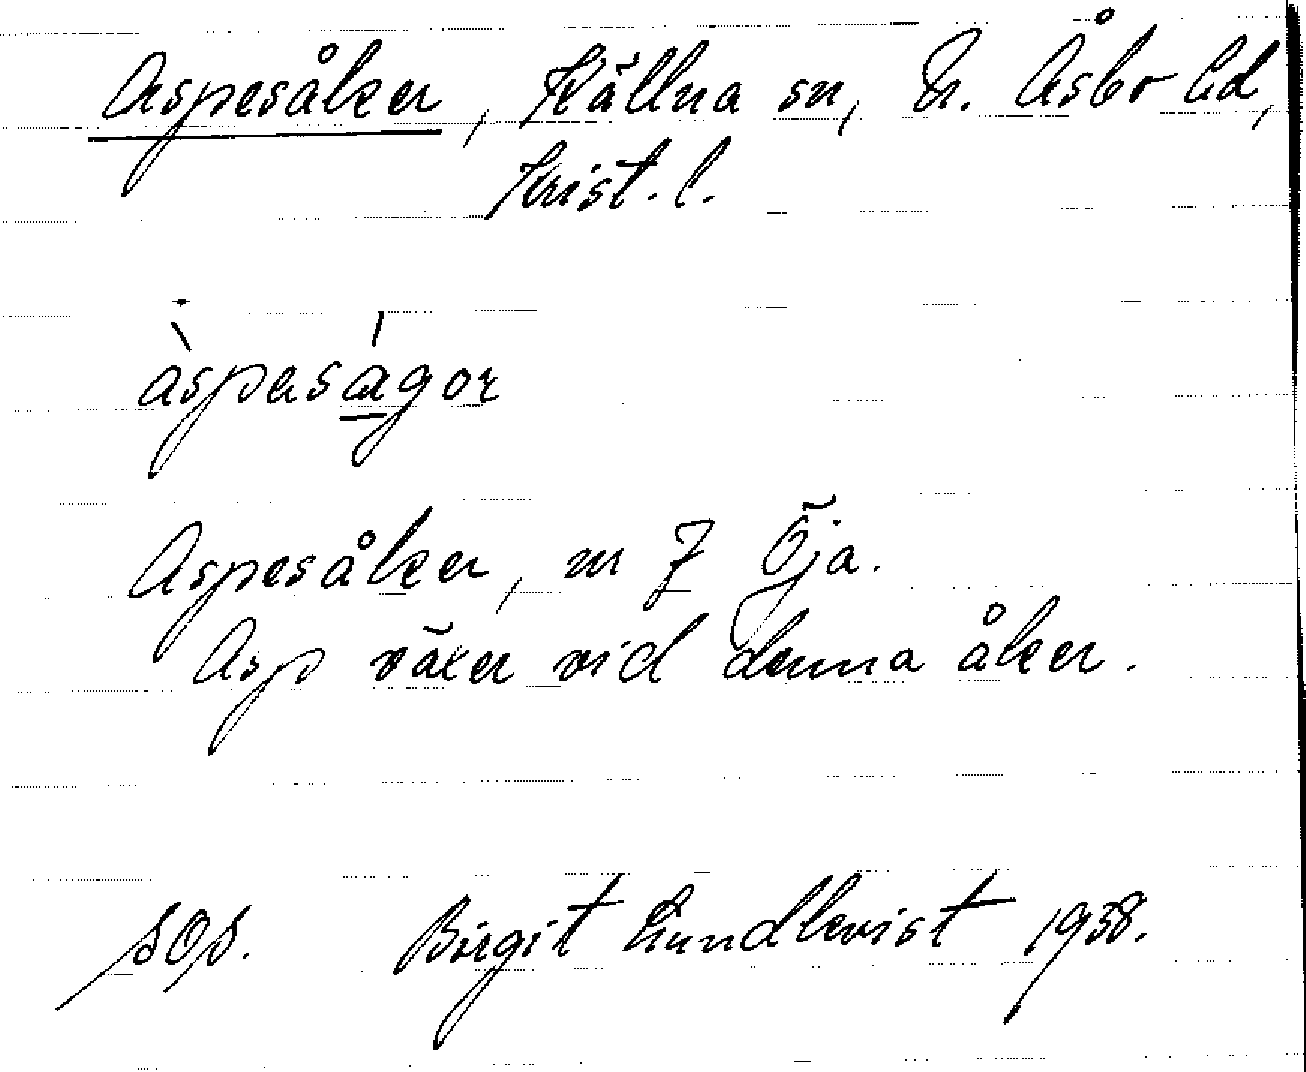 Aspesåker, Källna sn, N. Åsbo hd,
Krist. l.
àspeságor
Aspesåker, nr 7 Öja.
Asp växer vid denna åker.
SOS. Birgit Lundkvist 1938.